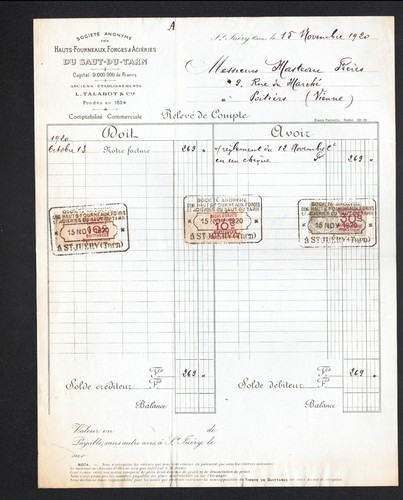 A
SOCIÉTÉ ANONYME
DES
HAUTS-FOURNEAUX, FORGES & ACIÉRIES
DU SAUT-DU-TARN
Capital: 9.000.000 de Francs
ANCIENS ÉTABLISSEMENTS
L. TALABOT & Cie
Fondés en 1824
Comptabilité Commerciale
St Juéry, Tarn, le 15 Novembre 1920
Messieurs Hasteau Frères
2, Rue du Marché
à Poitiers (Vienne)
Relevé de Compte
Doit
Avoir
1920
Octobre 13 Notre facture 269 "
règlement du 12 Novembre ct
en un chèque 269 "
SOCIÉTÉ ANONYME
DES HAUTS FOURNEAUX, FORGES
ET ACIÉRIES DU SAUT DU TARN
15 NOV 1920
À ST JUÉRY (Tarn)
SOCIÉTÉ ANONYME
DES HAUTS FOURNEAUX, FORGES
ET ACIÉRIES DU SAUT DU TARN
15 NOV 1920
10c
À ST JUÉRY (Tarn)
SOCIÉTÉ ANONYME
DES HAUTS FOURNEAUX, FORGES
ET ACIÉRIES DU SAUT DU TARN
15 NOV 1920
À ST JUÉRY (Tarn)
269 "
269 "
Solde créditeur
Solde débiteur
Balance
Balance
Valeur en
Payable, sans autre avis à St Juéry, le
sur
NOTA.